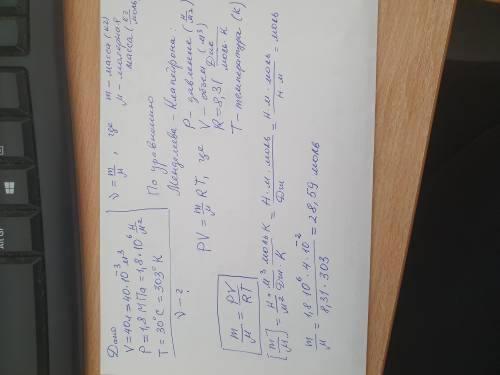 Дано
V=40л=40·10⁻³м³
P=1,8МПа=1,8·10⁶ Н/м²
T=30°C=303°K
ν-?
ν=m/μ, где m-масса (кг)
μ-молярная масса (кг/
По уравнению
Менделеева-Клапейрона:
PV=m/μ RT, где P-давление (Н/м²)
V-объем (м³)
R=8,31 Дж/моль·К
T-температура (К)
m/μ=PV/RT
[m/μ]=Н·м³/м² моль·К/Дж·К=Н·м·моль/Дж=Н·м·моль/Н·м=моль
m/μ=1,8·10⁶·4·10⁻²/8,31·303=28,59 моль